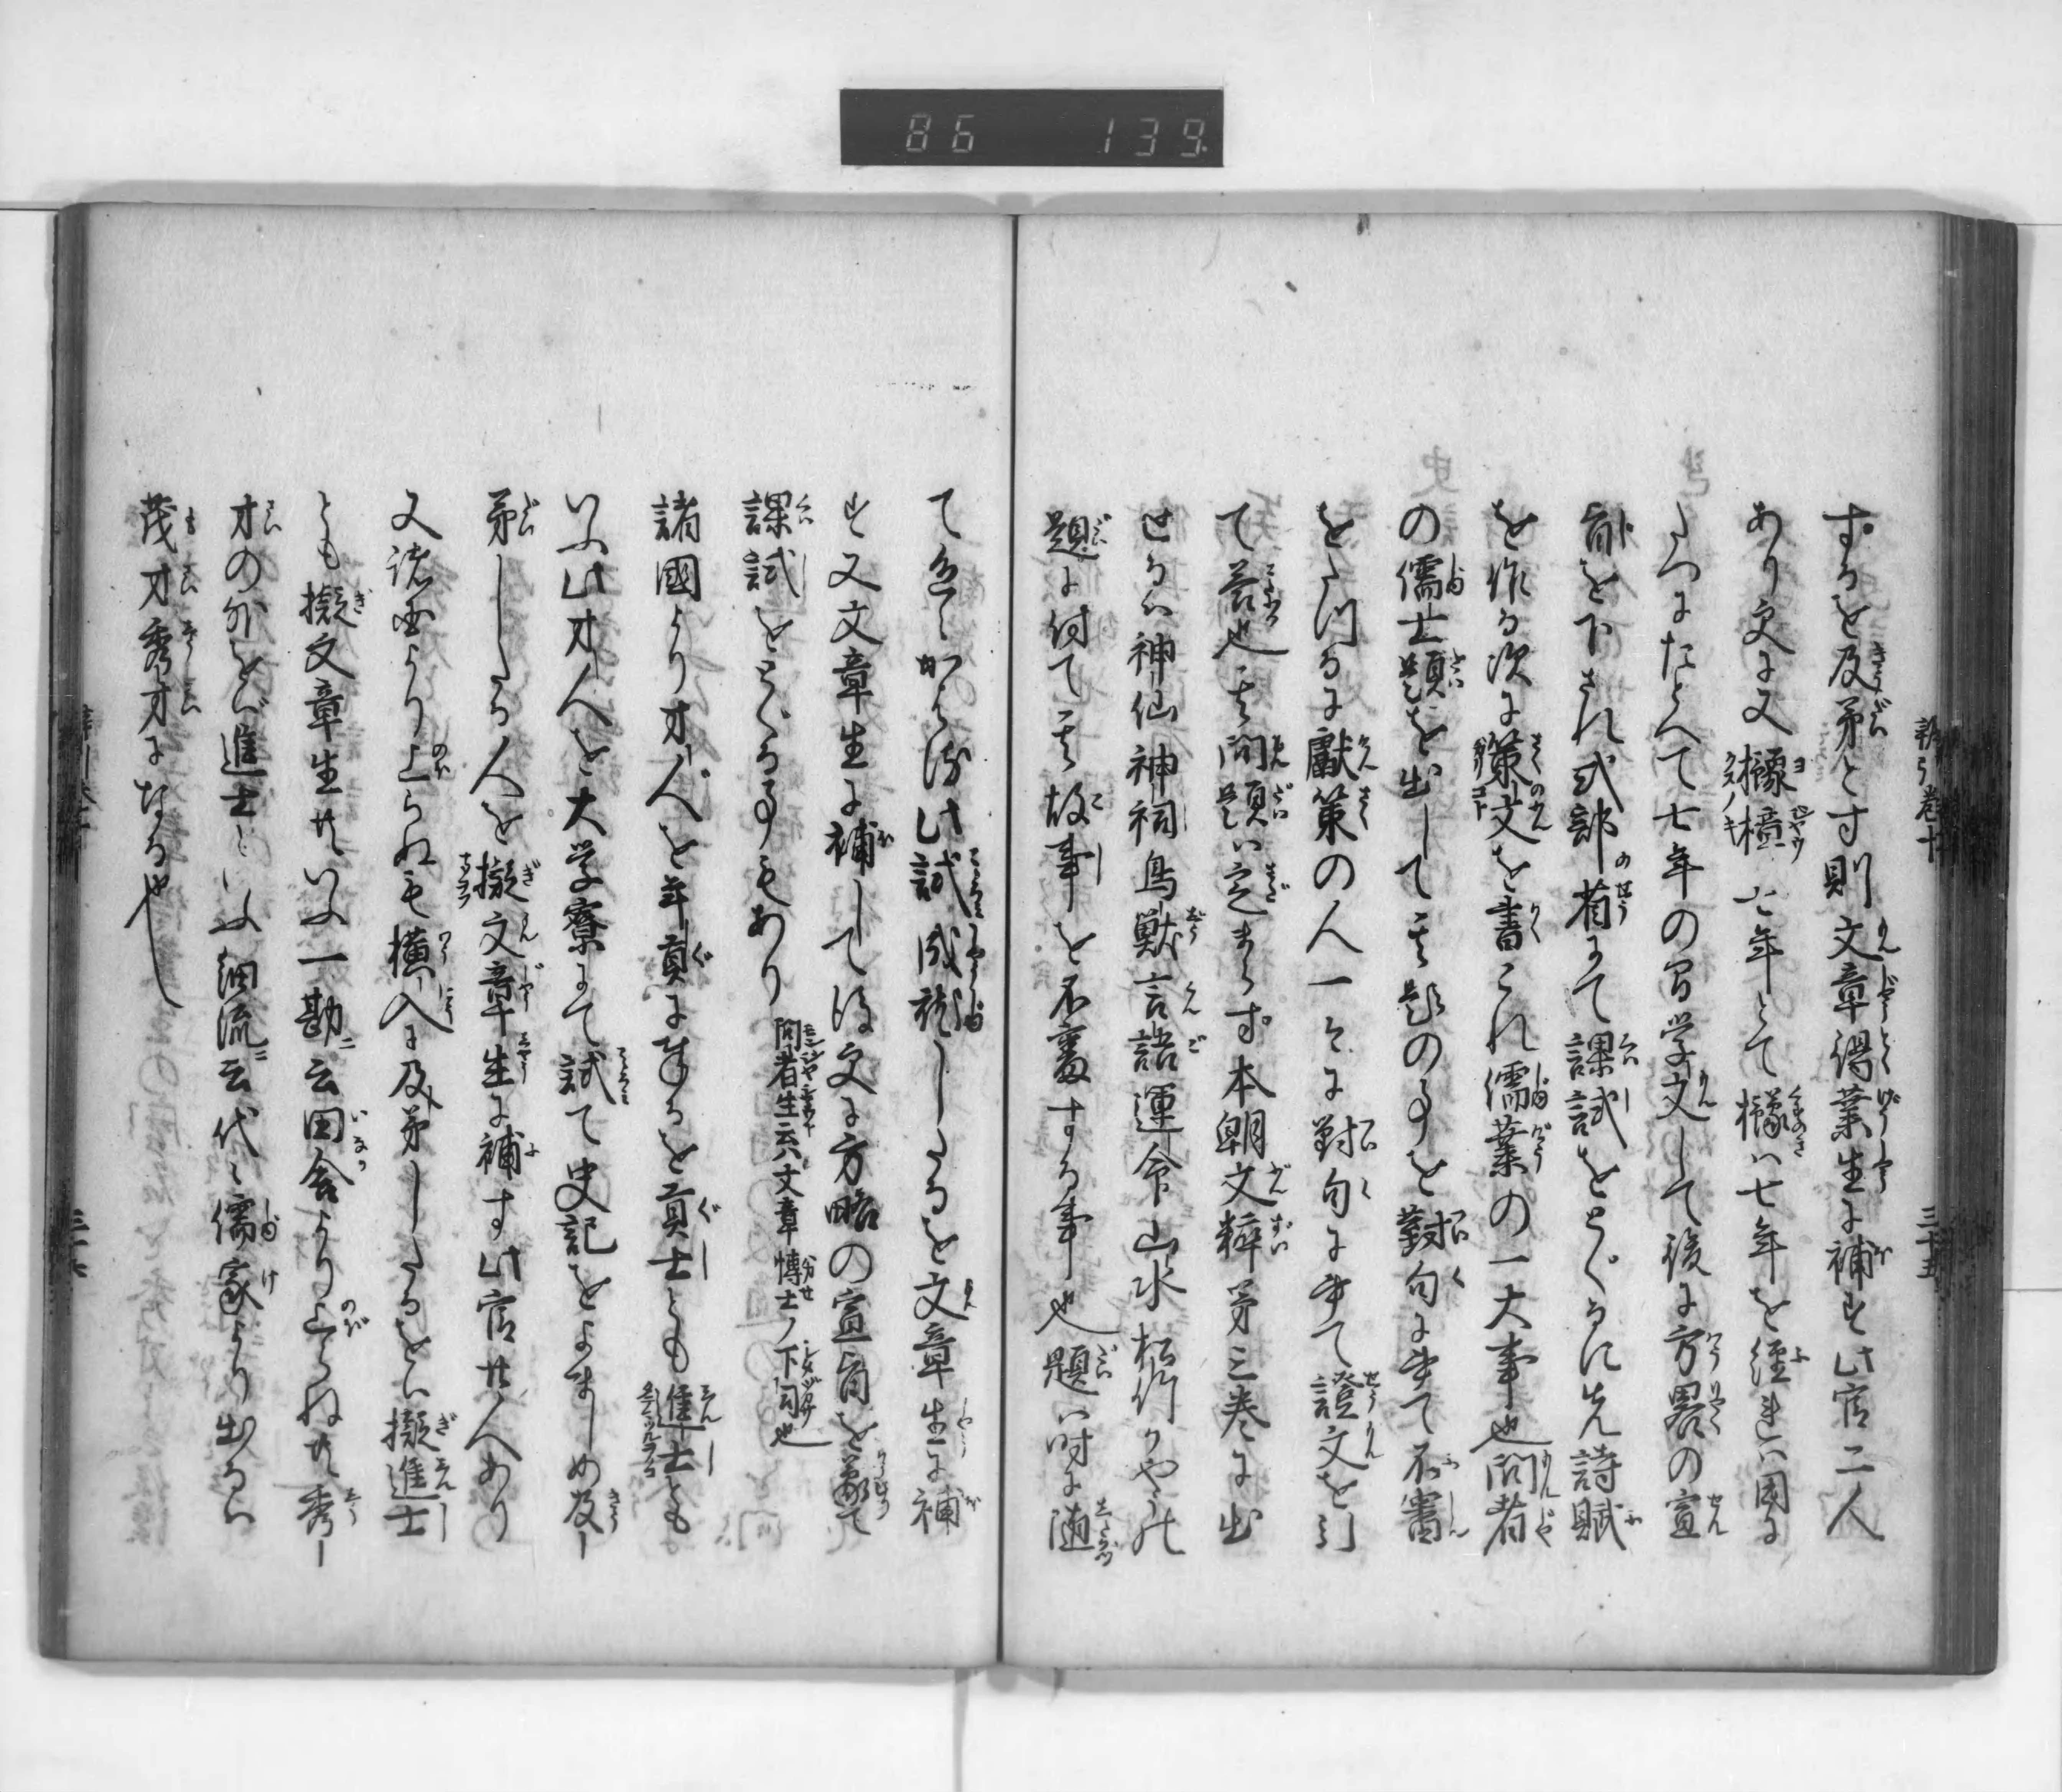 86 139
するを及第とす則文章得業生に補す此官二人
あり文に又櫲樟七年とて櫲は七年を経れは国に
たつにたとへて七年の間学文して後に方畧の宣
旨を下され式部省にて課試をとくるに先詩賦
を作る次に策文を書これ儒業の一大事也問者
の儒士題を出して其題の事を對句にして不審
をたつるに獻策の人一々に對句にして證文を引
て答也其問題は定まらず本朝文粹第三巻に出
せるは神仙神祠鳥獣言語運命山水松竹のやうの
題に付て其故事を不審する事也題は時に随
て色々かはる此試成就したるを文章生に補
す又文章生に補して後又方略の宣旨を蒙て
課試をとくる事もあり 問者生云六文章博士ノ下司也
諸國より才人を年貢に奉るを貢士とも進士とも
いふ此才人を大学寮にて試て史記をよましめ及
第したる人を擬文章生に補す此官廿人あり
又諸国より上らねとも横入に及第したるをは擬進士
とも擬文章生共いふ一勘ニ云田舎より上らね共秀
才の外をば進士といふ細流ニ云代々儒家より出るは
茂才秀才になる也